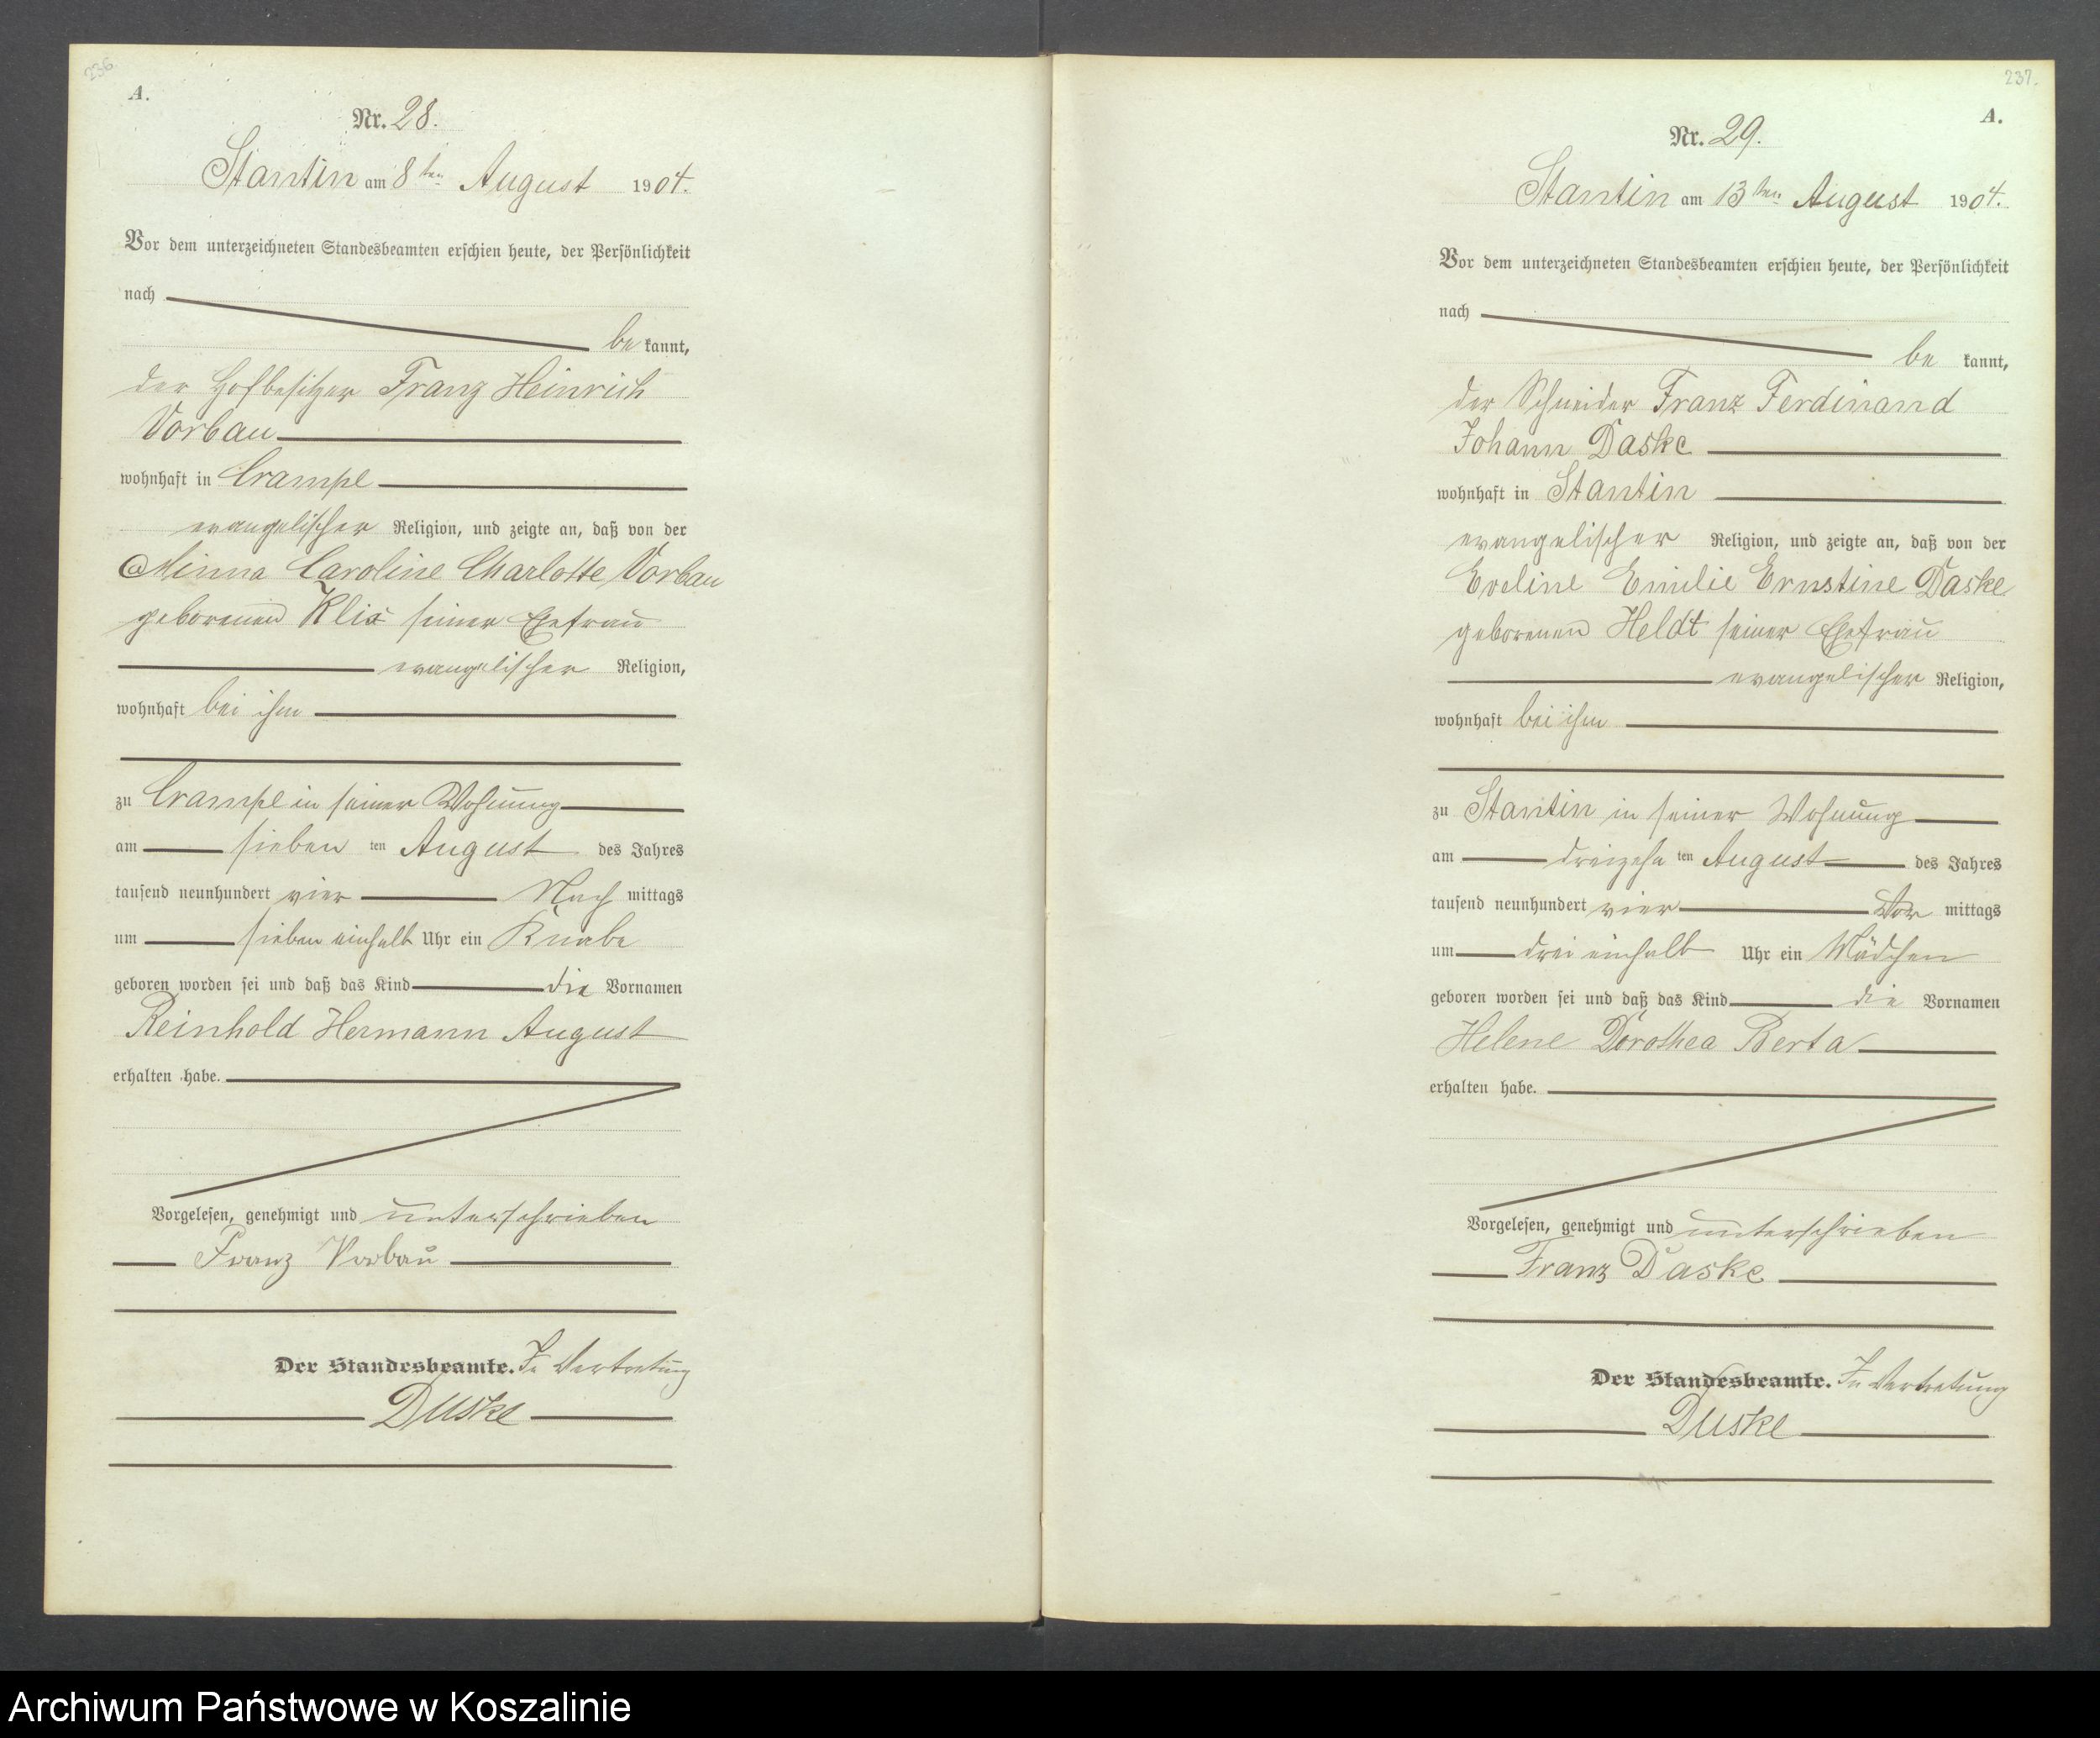 236.
A.
Nr. 28.
Stantin am 8ten August 1904.
Vor dem unterzeichneten Standesbeamten erschien heute, der Persönlichkeit
nach
be kannt,
der Hofbesitzer Franz Heinrich
Vorbau
wohnhaft in Crampe
evangelischer Religion, und zeigte an, daß von der
Minna Caroline Charlotte Vorbau
geborenen Klix seiner Ehefrau
evangelischer Religion,
wohnhaft bei ihm
zu Crampe in seiner Wohnung
am sieben ten August des Jahres
tausend neunhundert vier Nach mittags
um sieben einhalb Uhr ein Knabe
geboren worden sei und daß das Kind die Vornamen
Reinhold Hermann August
erhalten habe.
Vorgelesen, genehmigt und unterschrieben
Franz Vorbau
Der Standesbeamte. In Vertretung
Duske
237.
A.
Nr. 29.
Stantin am 13ten August 1904.
Vor dem unterzeichneten Standesbeamten erschien heute, der Persönlichkeit
nach
be kannt,
der Schneider Franz Ferdinand
Johann Daske
wohnhaft in Stantin
evangelischer Religion, und zeigte an, daß von der
Eveline Emilie Ernstine Daske
geborenen Heldt seiner Ehefrau
evangelischer Religion,
wohnhaft bei ihm
zu Stantin in seiner Wohnung
am dreizehn ten August des Jahres
tausend neunhundert vier Vor mittags
um drei einhalb Uhr ein Mädchen
geboren worden sei und daß das Kind die Vornamen
Helene Dorothea Berta
erhalten habe.
Vorgelesen, genehmigt und unterschrieben
Franz Daske
Der Standesbeamte. In Vertretung
Duske
Archiwum Państwowe w Koszalinie